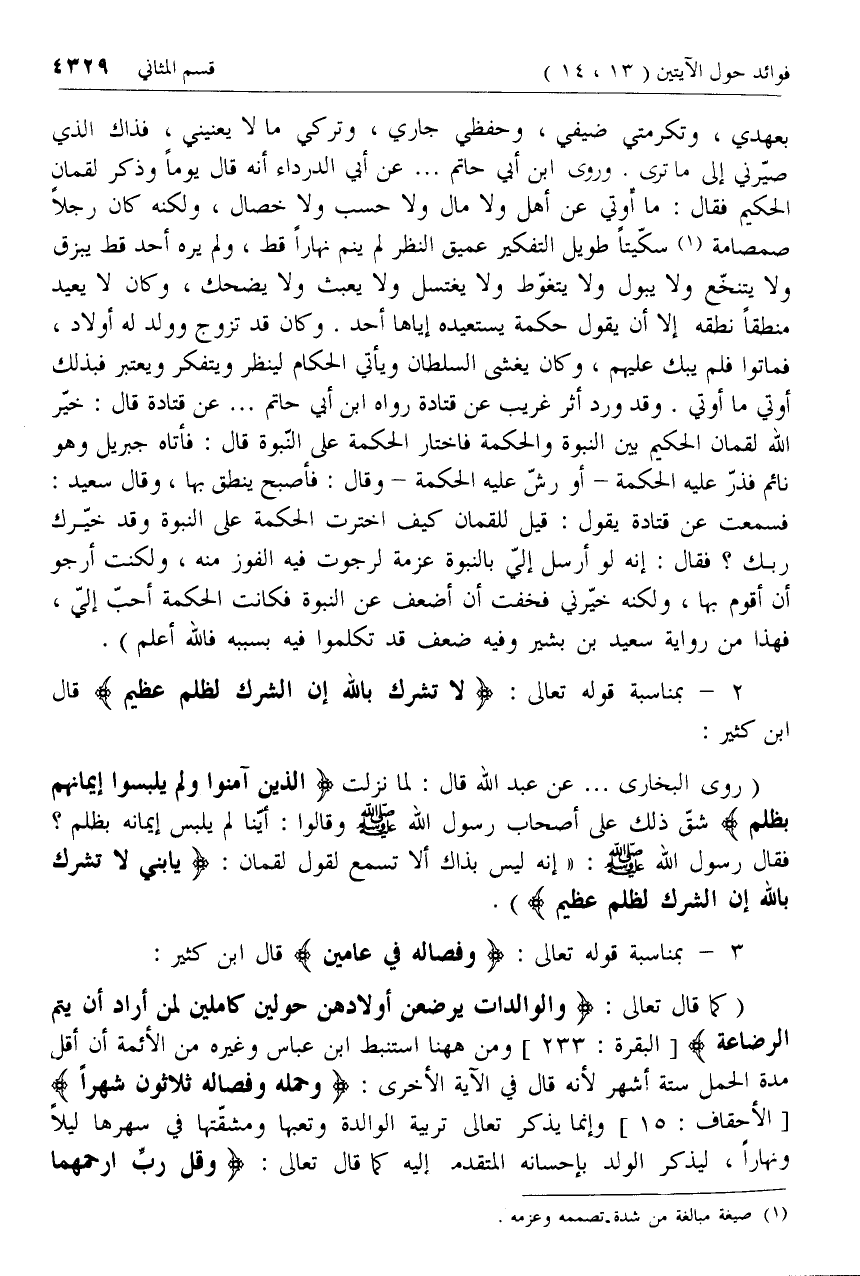 فوائد حول الآيتين ( ١٣ ، ١٤ ) قسم المثاني ٤٣٢٩
بعهدي ، وتكرمتي ضيفي ، وحفظي جاري ، وتركي ما لا يعنيني ، فذاك الذي
صيّرني إلى ما ترى . وروى ابن أبي حاتم ... عن أبي الدرداء أنه قال يوماً وذكر لقمان
الحكيم فقال : ما أوتي عن أهل ولا مال ولا حسب ولا خصال ، ولكنه كان رجلاً
صمصامة (١) سكّيتاً طويل التفكير عميق النظر لم ينم نهاراً قط ، ولم يره أحد قط يبزق
ولا يتنخّع ولا يبول ولا يتغوّط ولا يغتسل ولا يعبث ولا يضحك ، وكان لا يعيد
منطقاً نطقه إلا أن يقول حكمة يستعيده إياها أحد . وكان قد تزوج وولد له أولاد ،
فماتوا فلم يبك عليهم ، وكان يغشى السلطان ويأتي الحكام لينظر ويتفكر ويعتبر فبذلك
أوتي ما أوتي . وقد ورد أثر غريب عن قتادة رواه ابن أبي حاتم ... عن قتادة قال : خيّر
الله لقمان الحكيم بين النبوة والحكمة فاختار الحكمة على النّبوة قال : فأتاه جبريل وهو
نائم فذرّ عليه الحكمة – أو رشّ عليه الحكمة – وقال : فأصبح ينطق بها ، وقال سعيد :
فسمعت عن قتادة يقول : قيل للقمان كيف اخترت الحكمة على النبوة وقد خيّرك
ربك ؟ فقال : إنه لو أرسل إليّ بالنبوة عزمة لرجوت فيه الفوز منه ، ولكنت أرجو
أن أقوم بها ، ولكنه خيّرني فخفت أن أضعف عن النبوة فكانت الحكمة أحبّ إليّ ،
فهذا من رواية سعيد بن بشير وفيه ضعف قد تكلموا فيه بسببه فالله أعلم ) .
٢ – بمناسبة قوله تعالى : ﴿ لا تشرك بالله إن الشرك لظلم عظيم ﴾ قال
ابن كثير :
( روى البخارى ... عن عبد الله قال : لما نزلت ﴿ الذين آمنوا ولم يلبسوا إيمانهم
بظلم ﴾ شقّ ذلك على أصحاب رسول الله ﷺ وقالوا : أيّنا لم يلبس إيمانه بظلم ؟
فقال رسول الله ﷺ : « إنه ليس بذاك ألا تسمع لقول لقمان : ﴿ يابني لا تشرك
بالله إن الشرك لظلم عظيم ﴾ ) .
٣ – بمناسبة قوله تعالى : ﴿ وفصاله في عامين ﴾ قال ابن كثير :
( كما قال تعالى : ﴿ والوالدات يرضعن أولادهن حولين كاملين لمن أراد أن يتم
الرضاعة ﴾ [ البقرة : ٢٣٣ ] ومن ههنا استنبط ابن عباس وغيره من الأئمة أن أقل
مدة الحمل ستة أشهر لأنه قال في الآية الأخرى : ﴿ وحمله وفصاله ثلاثون شهراً ﴾
[ الأحقاف : ١٥ ] وإنما يذكر تعالى تربية الوالدة وتعبها ومشقّتها في سهرها ليلاً
ونهاراً ، ليذكر الولد بإحسانه المتقدم إليه كما قال تعالى : ﴿ وقل ربّ ارحمهما
(١) صيغة مبالغة من شدة تصممه وعزمه .